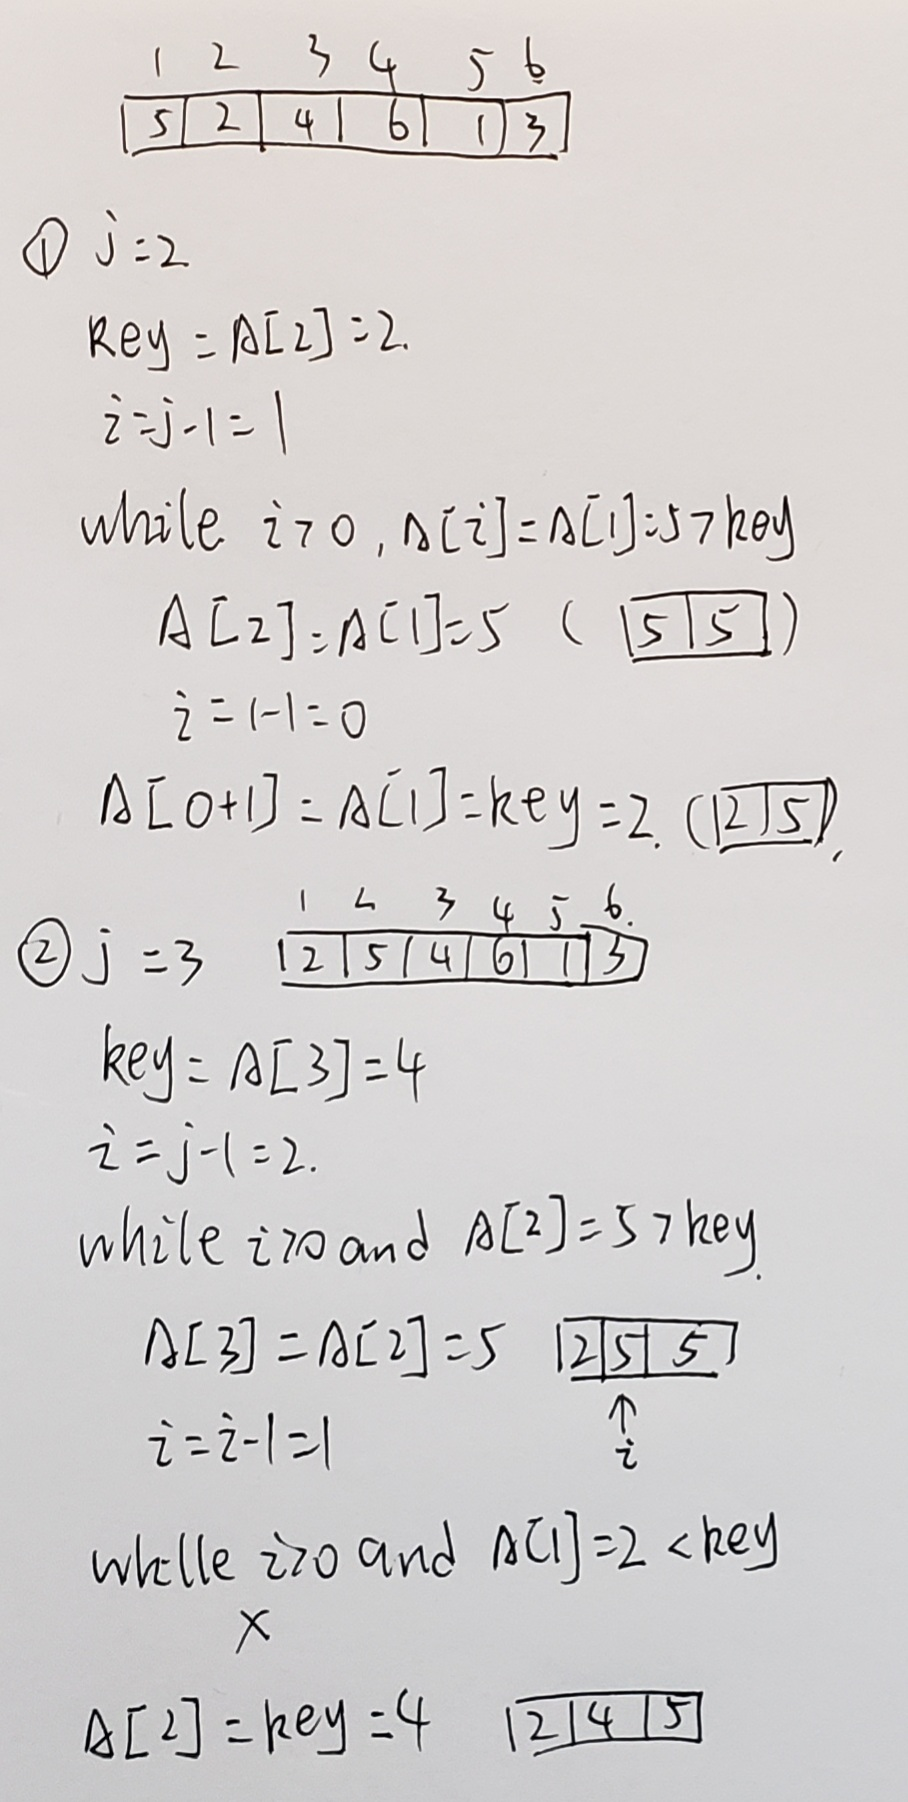 1 2 3 4 5 6
5 2 4 6 1 3
① j=2
Key = A[2] = 2.
i=j-1=1
while i>0, A[i]=A[1]=5>key
A[2]=A[1]=5 ( 5 5 )
i=1-1=0
A[0+1]=A[1]=key=2. ( 2 5 ),
1 2 3 4 5 6.
② j=3 2 5 4 6 1 3
key=A[3]=4
i=j-1=2.
while i>0 and A[2]=5>key.
A[3]=A[2]=5 2 5 5
i=i-1=1 ↑
i
while i>0 and A[1]=2<key
×
A[2]=key=4 2 4 5